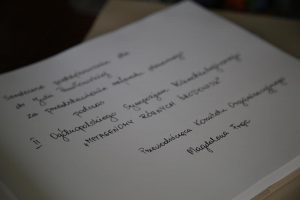 Serdeczne podziękowania dla
za przedstawienie referatu
podczas
II Ogólnopolskiego Sympozjum
"METAGENOMY RÓŻNYCH ŚRODOWISK"
Przewodnicząca Komitetu Organizacyjnego
Magdalena Frąc